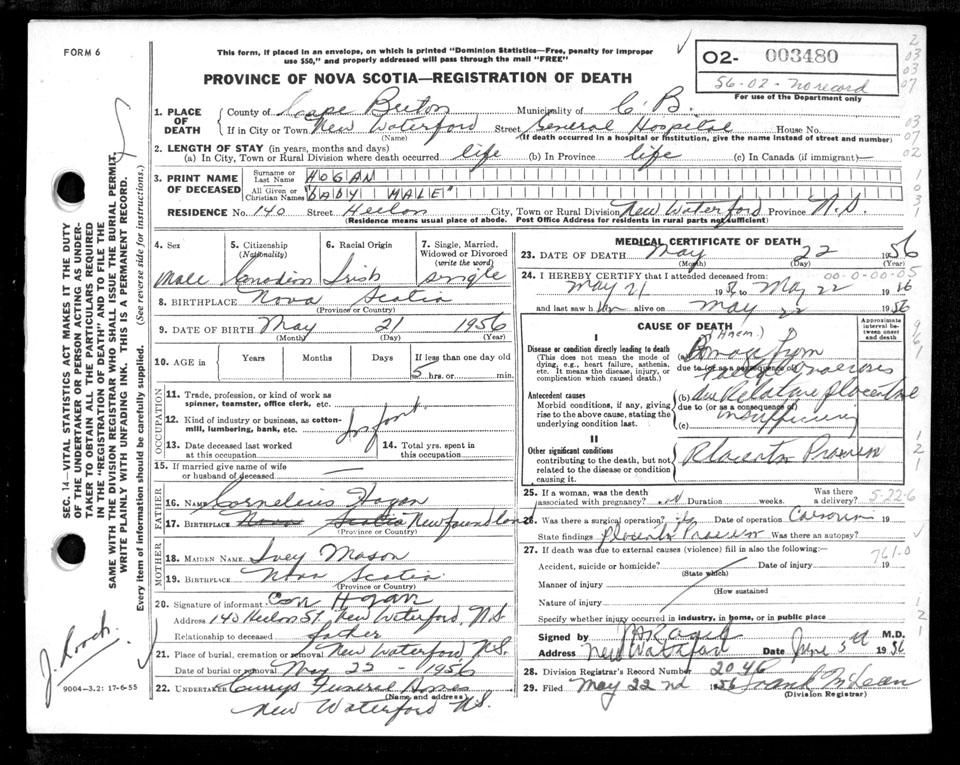 FORM 6
This form, if placed in an envelope, on which is printed "Dominion Statistics—Free, penalty for improper
use $50," and properly addressed will pass through the mail "FREE"
PROVINCE OF NOVA SCOTIA—REGISTRATION OF DEATH
02- 003480
56-02-no record
For use of the Department only
1. PLACE OF DEATH
County of Cape Breton Municipality of C. B.
If in City or Town New Waterford Street General Hospital House No.
(Name) (If death occurred in a hospital or institution, give the name instead of street and number)
2. LENGTH OF STAY (in years, months and days)
(a) In City, Town or Rural Division where death occurred life (b) In Province life (c) In Canada (if immigrant) —
3. PRINT NAME OF DECEASED
Surname or Last Name HOGAN
All Given or Christian Names "BABY MALE"
RESIDENCE No. 140 Street City, Town or Rural Division New Waterford Province N.S.
(Residence means usual place of abode. Post Office Address for residents in rural parts not sufficient)
4. Sex Male
5. Citizenship (Nationality) Canadian
6. Racial Origin Irish
7. Single, Married, Widowed or Divorced (write the word) Single
8. BIRTHPLACE Nova Scotia
(Province or Country)
9. DATE OF BIRTH May 21 1956
(Month) (Day) (Year)
10. AGE in Years Months Days If less than one day old
5 hrs. or min.
OCCUPATION
11. Trade, profession, or kind of work as spinner, teamster, office clerk, etc.
12. Kind of industry or business, as cotton-mill, lumbering, bank, etc. Infant
13. Date deceased last worked at this occupation
14. Total yrs. spent in this occupation
15. If married give name of wife or husband of deceased —
FATHER
16. NAME Cornelius Hogan
17. BIRTHPLACE Nova Scotia Newfoundland
(Province or Country)
MOTHER
18. MAIDEN NAME Ivey Mason
19. BIRTHPLACE Nova Scotia
(Province or Country)
20. Signature of informant Con Hogan
Address 140 St. New Waterford, N.S.
Relationship to deceased father
21. Place of burial, cremation or removal New Waterford N.S.
Date of burial or removal May 22 - 1956
22. UNDERTAKER Currys Funeral Home
(Name and address)
New Waterford N.S.
MEDICAL CERTIFICATE OF DEATH
23. DATE OF DEATH May 22 1956
(Month) (Day)
24. I HEREBY CERTIFY that I attended deceased from:
00-0-00-05
May 21 19 to May 22 1956
and last saw him alive on May 22 1956
CAUSE OF DEATH
Approximate interval between onset and death
I
Disease or condition directly leading to death
(This does not mean the mode of dying, e.g., heart failure, asthenia, etc. It means the disease, injury, or complication which caused death.)
(a)
due to (or as a consequence of)
Antecedent causes
Morbid conditions, if any, giving rise to the above cause, stating the underlying condition last.
(b) placental
due to (or as a consequence of)
insufficiency
(c)
II
Other significant conditions
contributing to the death, but not related to the disease or condition causing it.
Placenta Praevia
25. If a woman, was the death associated with pregnancy? Duration weeks. Was there a delivery? 5-22-6
26. Was there a surgical operation? Date of operation 19
State findings Placenta Praevia Was there an autopsy?
27. If death was due to external causes (violence) fill in also the following:—
761.0
Accident, suicide or homicide? Date of injury 19
(State which)
Manner of injury
(How sustained
Nature of injury
Specify whether injury occurred in industry, in home, or in public place
Signed by M.D.
Address New Waterford Date June 5th 1956
28. Division Registrar's Record Number 2046
29. Filed May 22nd 1956 Frank McLean
(Division Registrar)
SEC. 14—VITAL STATISTICS ACT MAKES IT THE DUTY
OF THE UNDERTAKER OR PERSON ACTING AS UNDER-
TAKER TO OBTAIN ALL THE PARTICULARS REQUIRED
IN THE "REGISTRATION OF DEATH" AND TO FILE THE
SAME WITH THE DIVISION REGISTRAR WHO SHALL ISSUE THE BURIAL PERMIT.
WRITE PLAINLY WITH UNFADING INK. THIS IS A PERMANENT RECORD.
Every item of information should be carefully supplied. (See reverse side for instructions.)
9004—3.2: 17-6-55